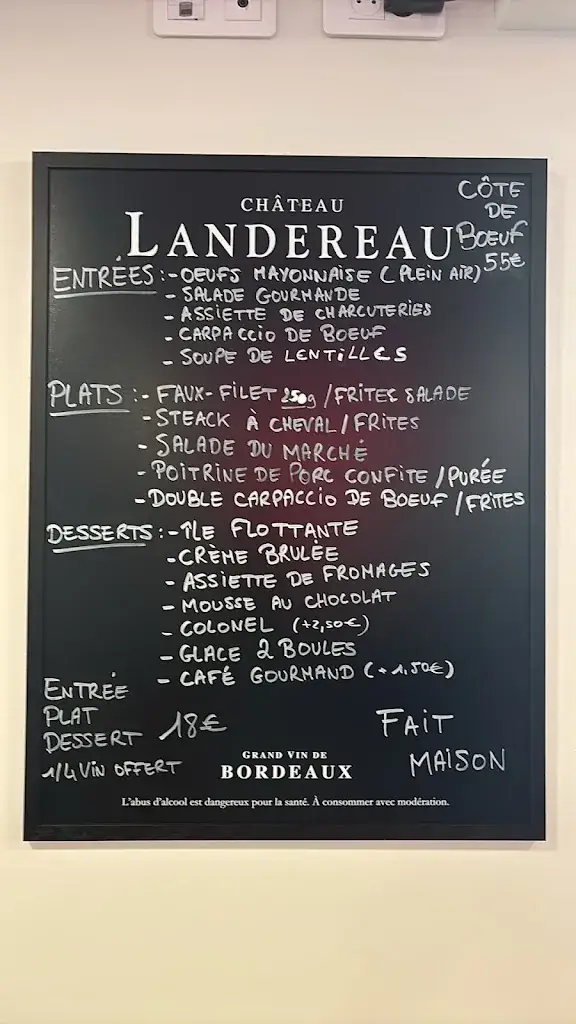 CHÂTEAU
LANDEREAU
CÔTE
DE
BOEUF
55€
ENTRÉES :- OEUFS MAYONNAISE (PLEIN AIR)
- SALADE GOURMANDE
- ASSIETTE DE CHARCUTERIES
- CARPACCIO DE BOEUF
- SOUPE DE LENTILLES
PLATS :- FAUX-FILET 250g /FRITES SALADE
- STEACK À CHEVAL/FRITES
- SALADE DU MARCHÉ
- POITRINE DE PORC CONFITE/PURÉE
- DOUBLE CARPACCIO DE BOEUF/FRITES
DESSERTS :- ÎLE FLOTTANTE
- CRÈME BRULÉE
- ASSIETTE DE FROMAGES
- MOUSSE AU CHOCOLAT
- COLONEL (+2,50€)
- GLACE 2 BOULES
- CAFÉ GOURMAND (+1,50€)
ENTRÉE
PLAT
DESSERT 18€
1/4 VIN OFFERT
FAIT
MAISON
GRAND VIN DE
BORDEAUX
L'abus d'alcool est dangereux pour la santé. À consommer avec modération.